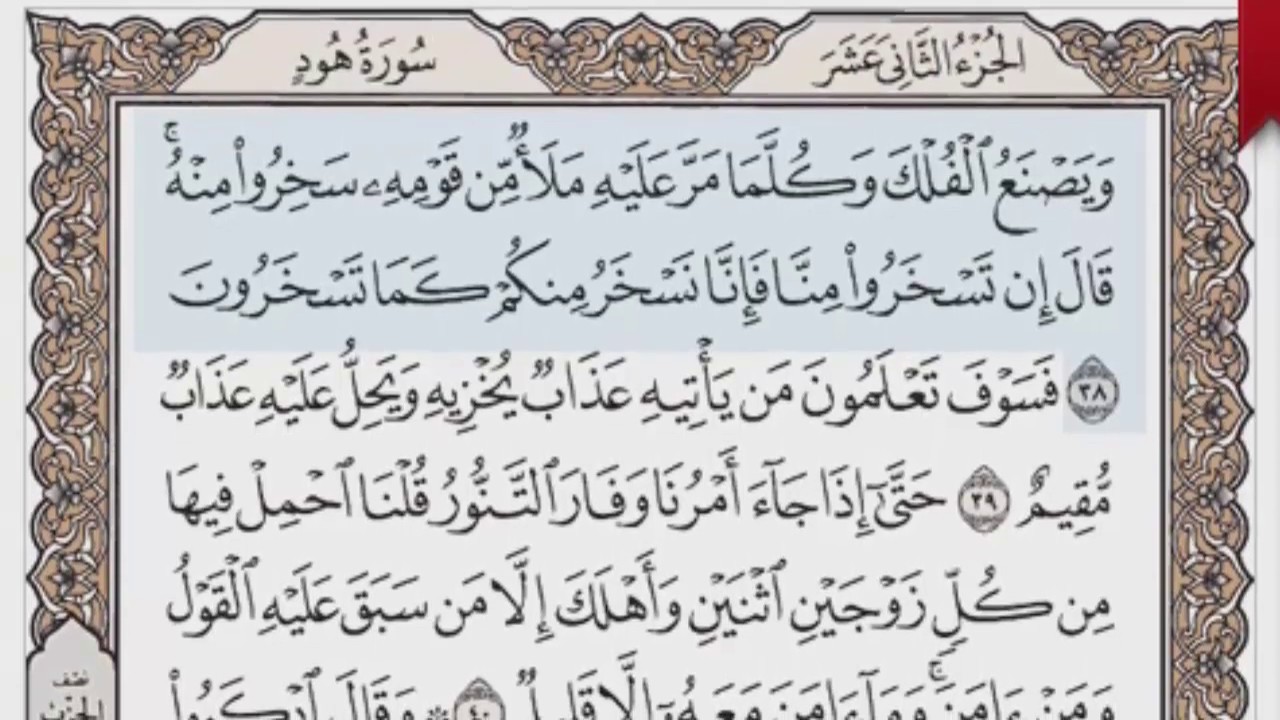 الجُزْءُ الثَّانِي عَشَرَ
سُورَةُ هُودٍ
وَيَصْنَعُ ٱلْفُلْكَ وَكُلَّمَا مَرَّ عَلَيْهِ مَلَأٌ مِّن قَوْمِهِۦ سَخِرُوا۟ مِنْهُ ۚ
قَالَ إِن تَسْخَرُوا۟ مِنَّا فَإِنَّا نَسْخَرُ مِنكُمْ كَمَا تَسْخَرُونَ
٣٨ فَسَوْفَ تَعْلَمُونَ مَن يَأْتِيهِ عَذَابٌ يُخْزِيهِ وَيَحِلُّ عَلَيْهِ عَذَابٌ
مُّقِيمٌ ٣٩ حَتَّىٰٓ إِذَا جَآءَ أَمْرُنَا وَفَارَ ٱلتَّنُّورُ قُلْنَا ٱحْمِلْ فِيهَا
مِن كُلٍّ زَوْجَيْنِ ٱثْنَيْنِ وَأَهْلَكَ إِلَّا مَن سَبَقَ عَلَيْهِ ٱلْقَوْلُ
وَمَنْ ءَامَنَ ۚ وَمَآ ءَامَنَ مَعَهُۥٓ إِلَّا قَلِيلٌ ٤٠ ۞ وَقَالَ ٱرْكَبُوا۟
نصف
الحزب